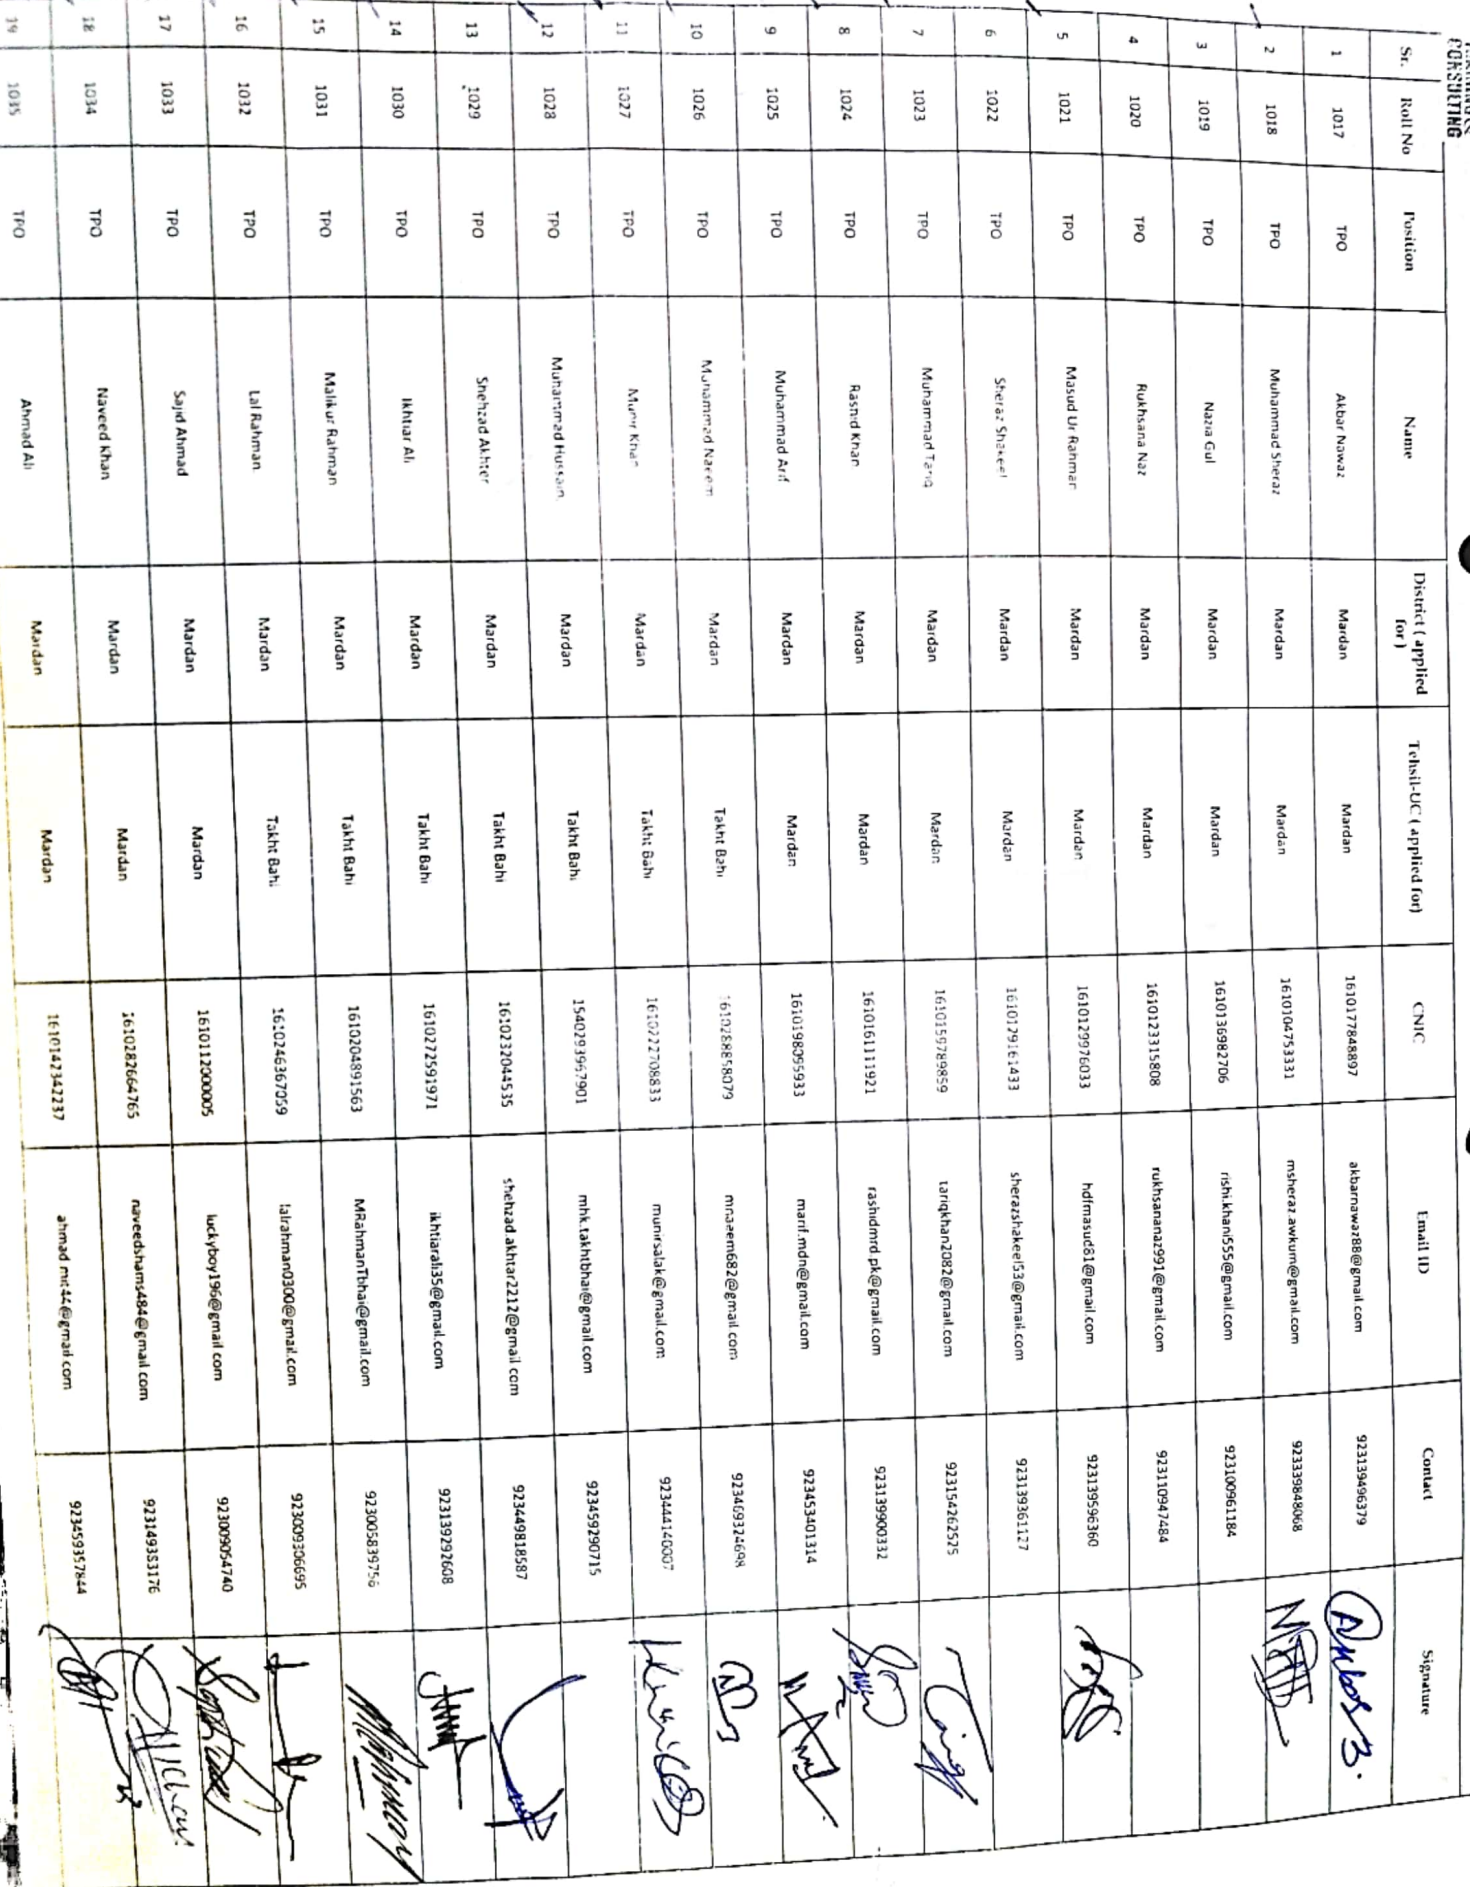 CONSULTING
Sr. Roll No Position Name District ( applied for ) Tehsil-UC ( applied for) CNIC Email ID Contact Signature
1 1017 TPO Akbar Nawaz Mardan Mardan 1610177848897 akbarnawaz88@gmail.com 923139496379
2 1018 TPO Muhammad Sheraz Mardan Mardan 1610104753331 msheraz.awkum@gmail.com 923339848068
3 1019 TPO Nazia Gul Mardan Mardan 1610136982706 rishi.khani555@gmail.com 923100961184
4 1020 TPO Rukhsana Naz Mardan Mardan 1610123315808 rukhsananaz991@gmail.com 923110947484
5 1021 TPO Masud Ur Rahman Mardan Mardan 1610129976033 hdfmasud81@gmail.com 923139596360
6 1022 TPO Sheraz Shakeel Mardan Mardan 1610179161433 sherazshakeel53@gmail.com 923139361127
7 1023 TPO Muhammad Tariq Mardan Mardan 1610159789859 tariqkhan2082@gmail.com 923154262525
8 1024 TPO Rashid Khan Mardan Mardan 1610161111921 rashidmrd.pk@gmail.com 923139900332
9 1025 TPO Muhammad Arif Mardan Mardan 1610198095933 marif.mdn@gmail.com 923453401314
10 1026 TPO Muhammad Naeem Mardan Takht Bahi 1610288858079 mnaeem682@gmail.com 923469324698
11 1027 TPO Munir Khan Mardan Takht Bahi 1610222708833 munirsalak@gmail.com 923444140007
12 1028 TPO Muhammad Hussain Mardan Takht Bahi 1540293967901 mhk.takhtbhai@gmail.com 923459290715
13 1029 TPO Shehzad Akhter Mardan Takht Bahi 1610232044535 shehzad.akhtar2212@gmail.com 923449818587
14 1030 TPO Ikhtiar Ali Mardan Takht Bahi 1610272591971 ikhtiarali35@gmail.com 923139292608
15 1031 TPO Malikur Rahman Mardan Takht Bahi 1610204891563 MRahmanTbhai@gmail.com 923005839756
16 1032 TPO Lal Rahman Mardan Takht Bahi 1610246367059 lalrahman0300@gmail.com 923009306695
17 1033 TPO Sajid Ahmad Mardan Mardan 1610112000005 luckyboy196@gmail.com 923009054740
18 1034 TPO Naveed Khan Mardan Mardan 1610282664765 naveedshams484@gmail.com 923149383176
19 1035 TPO Ahmad Ali Mardan Mardan 1610142342237 ahmad.mit44@gmail.com 923459357844